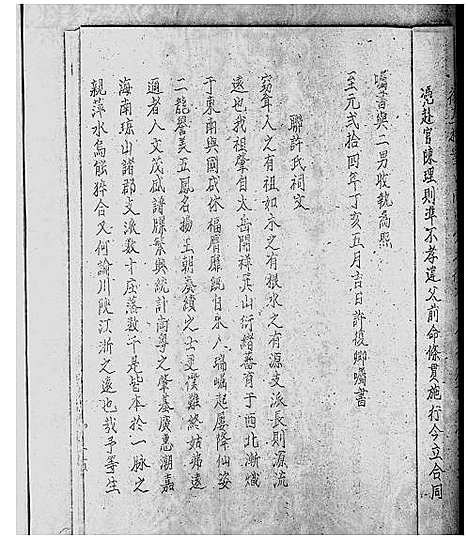 憑赴官陳理則準不孝違父前命條貫施行今立合同
囑書與二男收執爲照
至元弍拾四年丁亥五月吉日許俊卿囑書
聯許氏祠文
竊聞人之有祖如木之有根水之有源支派長則源流
遠也我祖肇自太岳開祥箕山衍緒蕃育于西北漸熾
于東南與國咸休福膺縣觀自永人瑞崛起屢降仙姿
二龍譽美五鳳名揚王朝庚續之士更僕難終姑弗遠
適者人文茂盛譜牒繁興統計南粵之肇基廣惠潮嘉
海南瓊山諸郡支派數十庄落數千是皆本於一脈之
親萍水烏能猝合又何論川陝江浙之遠也哉予等生